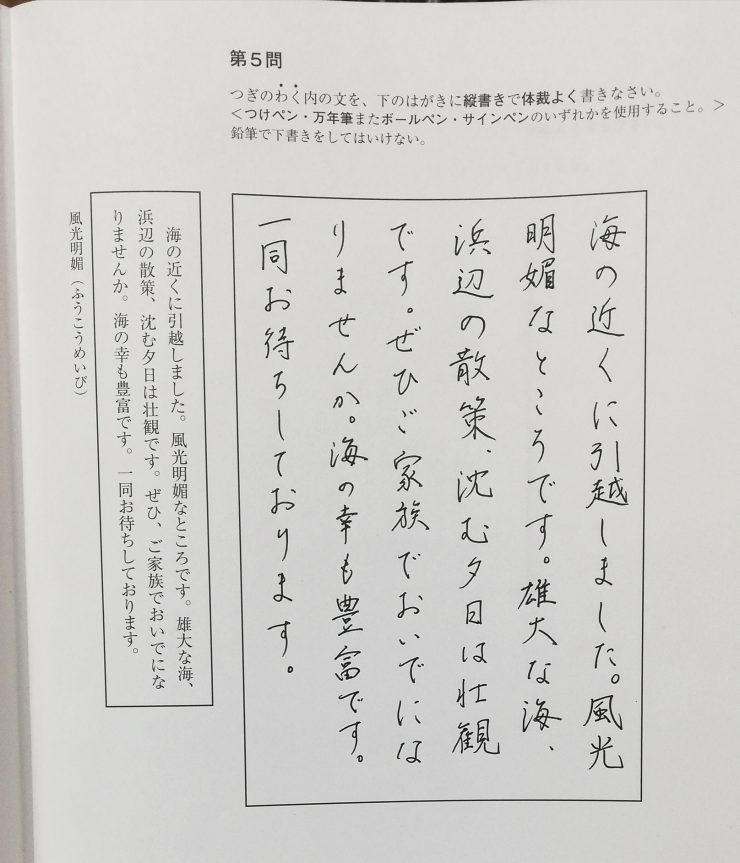 第5問
つぎのわく内の文を、下のはがきに縦書きで体裁よく書きなさい。
＜つけペン・万年筆またボールペン・サインペンのいずれかを使用すること。＞
鉛筆で下書きをしてはいけない。
海の近くに引越しました。風光
明媚なところです。雄大な海、
浜辺の散策、沈む夕日は壮観
です。ぜひご家族でおいでにな
りませんか。海の幸も豊富です。
一同お待ちしております。
海の近くに引越しました。風光明媚なところです。雄大な海、
浜辺の散策、沈む夕日は壮観です。ぜひ、ご家族でおいでにな
りませんか。海の幸も豊富です。一同お待ちしております。
風光明媚（ふうこうめいび）